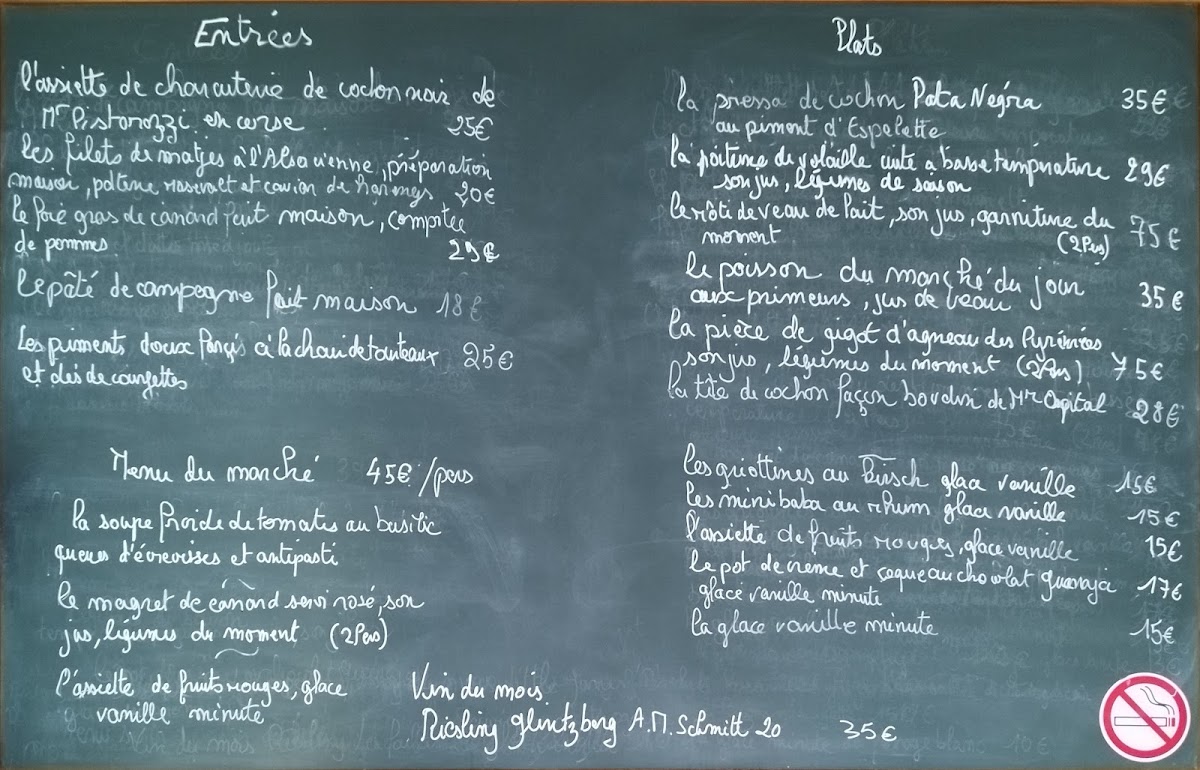 Entrées
l'assiette de charcuterie de cochon noir de
Mr Pistorozzi en corse 25€
les filets de matjes à l'Alsacienne, préparation
maison, pomme roseval et caviar de harengs 20€
le foie gras de canard fait maison, compotée
de pommes 29€
le pâté de campagne fait maison 18€
Les piments doux farcis à la chair de tourteaux 25€
et dés de courgettes
Menu du marché 45€/pers
la soupe froide de tomates au basilic
queues d'écrevisses et antipasti
le magret de canard servi rosé, son
jus, légumes du moment (2Pers)
l'assiette de fruits rouges, glace
vanille minute
Vin du mois
Riesling A.M. Schmitt 20 35€
Plats
la pressa de cochon Pata Negra 35€
au piment d'Espelette
la poitrine de volaille cuite a basse température 29€
son jus, légumes de saison
le rôti de veau de lait, son jus, garniture du
moment (2Pers) 75€
le poisson du marché du jour
aux primeurs, jus de veau 35€
la pièce de gigot d'agneau des Pyrénées
son jus, légumes du moment (2Pers) 75€
la tête de cochon façon boudin de Mr Ospital 28€
les griottines au kirsch glace vanille 15€
les mini baba au rhum glace vanille 15€
l'assiette de fruits rouges, glace vanille 15€
le pot de crème et coque au chocolat guanaja 17€
glace vanille minute
la glace vanille minute 15€